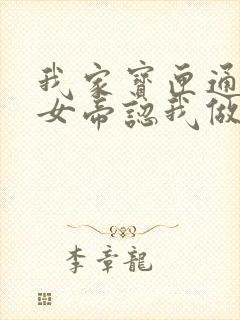 我家寶匣通
女帝認我做
李章龍